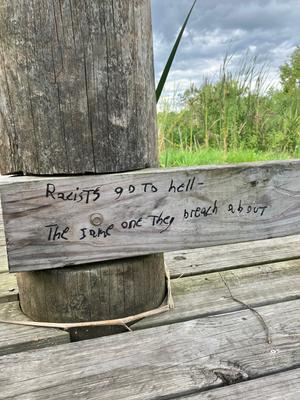 RacisTs go To hell-
The same one They breach about